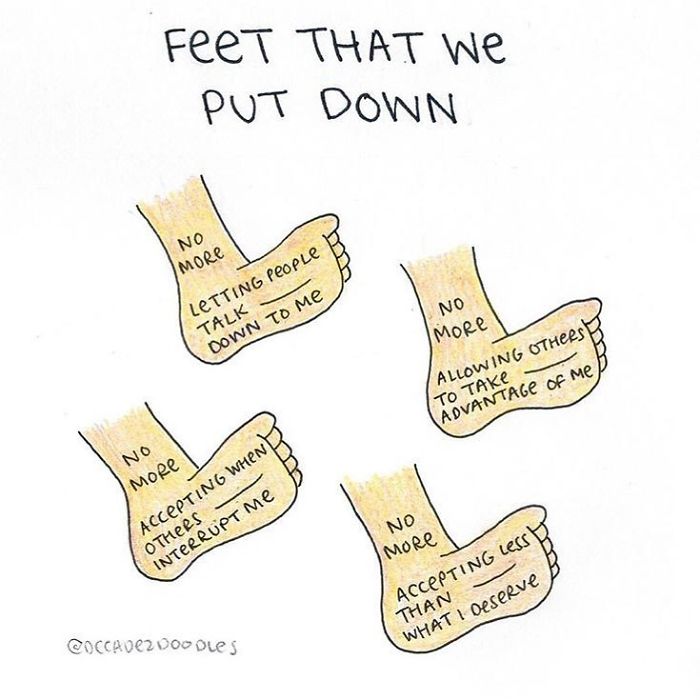 FeeT THAT We
PUT DOWN
NO
MORe
LeTTING PeOPLe
TALK
DOWN TO Me
NO
MORe
ALLOWING OTHeRS
TO TAKe
ADVANTAGe OF Me
NO
MORe
ACCePTING WHeN
OTHeRS
INTeRRUPT Me
NO
MORe
ACCePTING Less
THAN
WHAT I DeseRVe